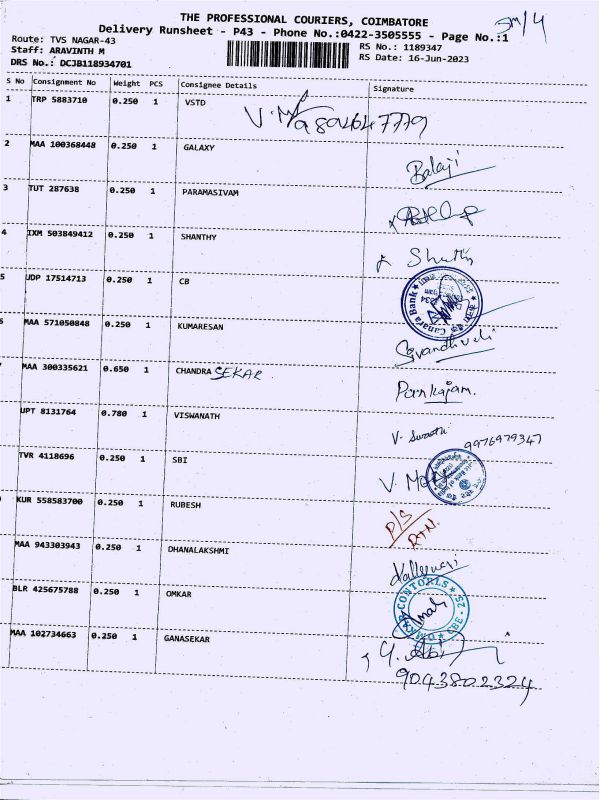 THE PROFESSIONAL COURIERS, COIMBATORE
Delivery Runsheet - P43 - Phone No.:0422-3505555 - Page No.:1
SM/4
Route: TVS NAGAR-43
RS No.: 1189347
Staff: ARAVINTH M
RS Date: 16-Jun-2023
DRS No.: DCJB118934701
S No Consignment No Weight PCS Consignee Details Signature
1 TRP 5883710 0.250 1 VSTD
2 MAA 100368448 0.250 1 GALAXY Balaji
3 TUT 287638 0.250 1 PARAMASIVAM
4 IXM 503849412 0.250 1 SHANTHY
5 UDP 17514713 0.250 1 CB Canara Bank
6 MAA 571050848 0.250 1 KUMARESAN
MAA 300335621 0.650 1 CHANDRA SEKAR Pankajam.
UPT 8131764 0.780 1 VISWANATH V. Swathi 9976979347
TVR 4118696 0.250 1 SBI
KUR 558583700 0.250 1 RUBESH D/S RTN.
MAA 943303943 0.250 1 DHANALAKSHMI
BLR 425675788 0.250 1 OMKAR
MAA 102734663 0.250 1 GANASEKAR
9043802324